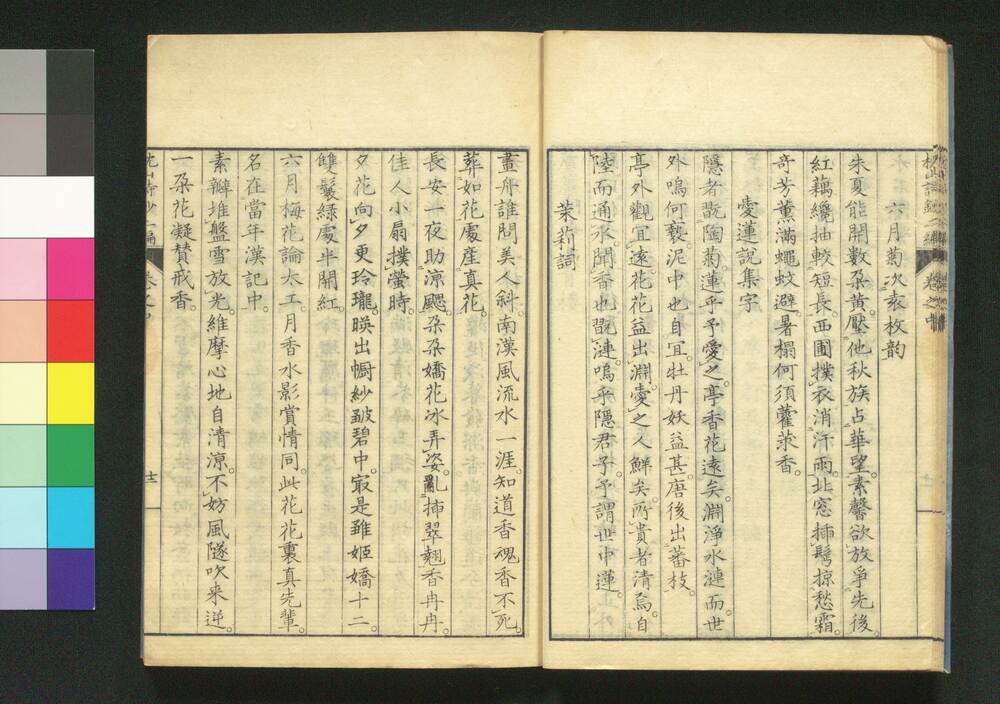 六月菊次袁枚韵
朱夏能開數朶黄。壓他秋族占華望。素馨欲放爭先後。
紅藕纔抽較短長。西圃撲衣消汗雨。北窓挿鬂掠愁霜。
奇芳薰滿蠅蚊避。暑榻何須藿菜香。
愛蓮說集字
隱者旣陶菊。蓮乎予愛之。亭香花遠矣。淵淨水漣而。世
外嗚何褻。泥中也自冝。牡丹妖益甚。唐後出蕃枝。
亭外觀冝遠。花花益出淵。愛之人鮮矣。所貴者清焉。自
陸而通水。聞香也旣漣。嗚乎隱君子。予謂世中蓮。
茉莉詞
畫舟誰問美人斜。南漢風流水一涯。知道香魂香不死。
葬如花處産真花。
長安一夜助涼颸。朶朶嬌花冰弄姿。亂挿翠翹香冉冉。
佳人小扇撲螢時。
夕花向夕更玲瓏。暎出幮紗皺碧中。㝡是雖姬嬌十二。
雙鬟綠處半開紅。
六月梅花論太工。月香水影賞情同。此花花裏真先輩。
名在當年漢記中。
素瓣堆盤雪放光。維摩心地自清涼。不妨風隧吹来逆。
一朶花凝賛戒香。